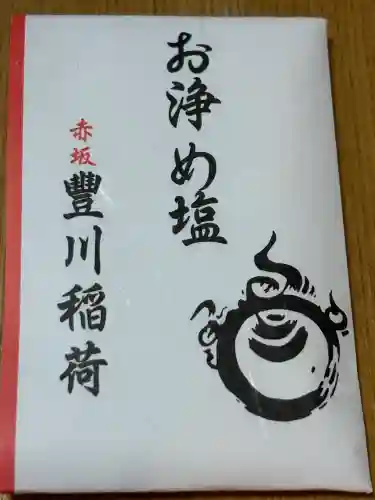 お浄め塩
赤坂
豐川稲荷